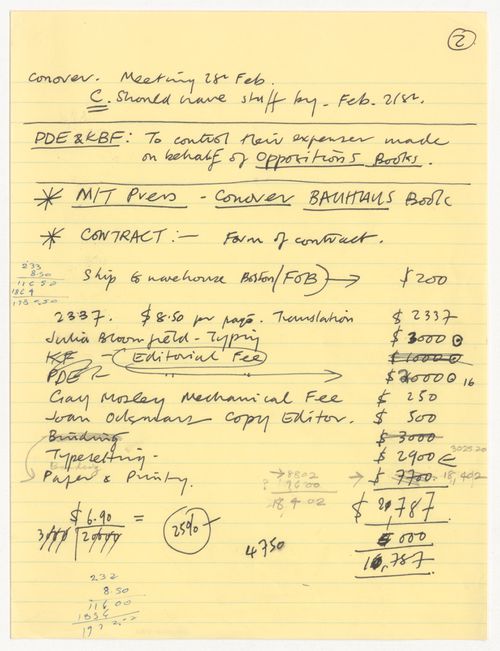 2
Conover. Meeting 28th Feb.
C. Should have stuff by - Feb. 21st.
PDE & KBF: To control their expenses made
on behalf of Oppositions Books.
* MIT Press - Conover BAUHAUS Book
* CONTRACT:- Form of contract.
233
8.50
Ship to warehouse Boston (FOB) → $200
2337. $8.50 per page. Translation $ 2337
Julia Bloomfield - Typing $ 3000
KF - Editorial Fee $ 1000
PDE - " " → $ 2000 16
Gay Mosley Mechanical Fee $ 250
Joan Copy Editor. $ 500
Binding $ 3000
Typesetting - $ 2900
Binding
Paper & Printing. → 8802 → $ 7700 - 18,402
9600
18,402
$ 6.90 = 25% $ 21,787
3,000 20,000
4750 000
16,787
232
8.50
116 00